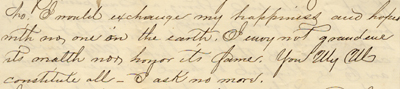 No. I would exchange my happiness and hopes
with no one on the earth. I envy not grandeur
its wealth nor honor its fame. You My All
constitute all - I ask no more.